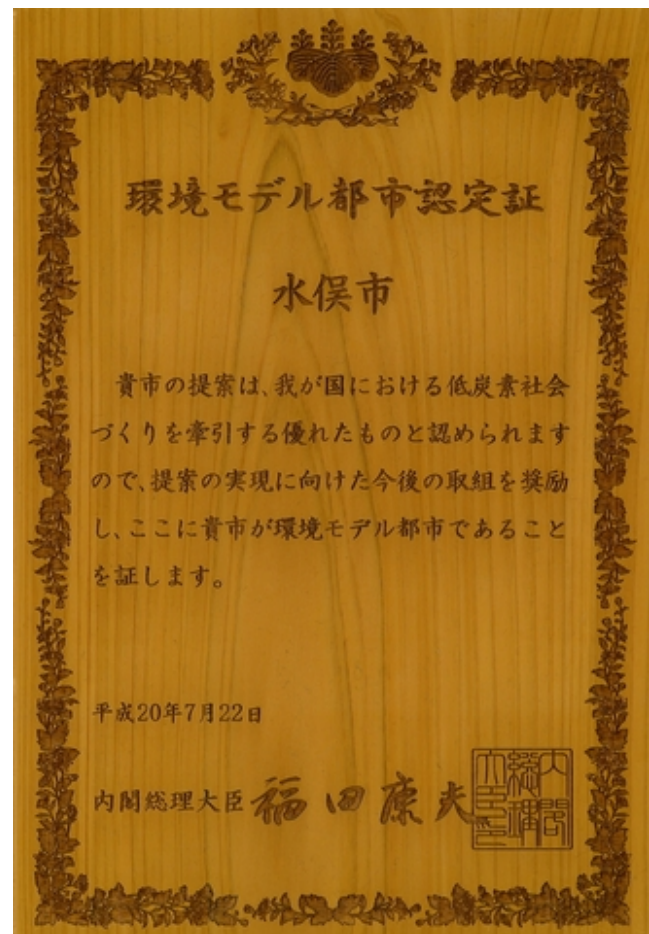 環境モデル都市認定証
水俣市
貴市の提案は、我が国における低炭素社会
づくりを牽引する優れたものと認められます
ので、提案の実現に向けた今後の取組を奨励
し、ここに貴市が環境モデル都市であること
を証します。
平成20年7月22日
内閣総理大臣 福田康夫
内閣総理大臣印